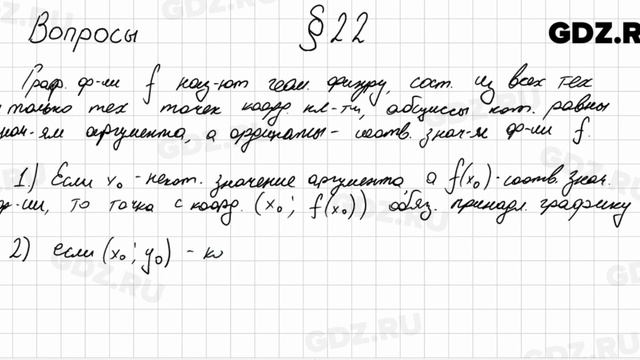 Вопросы § 22
GDZ.R
Граф. ф-ии f наз-ют геом. фигуру, сост. из всех тех
только тех точек коорд. пл-ти, абсциссы кот. равны
знач-ям аргумента, а ординаты - соотв. знач-м ф-ии f.
1.) Если x₀ - некот. значение аргумента, а f(x₀) - соотв. знач.
ф-ии, то точка с коорд. (x₀; f(x₀)) обяз. принадл. графику
2) если (x₀; y₀) - ко
GDZ.RU